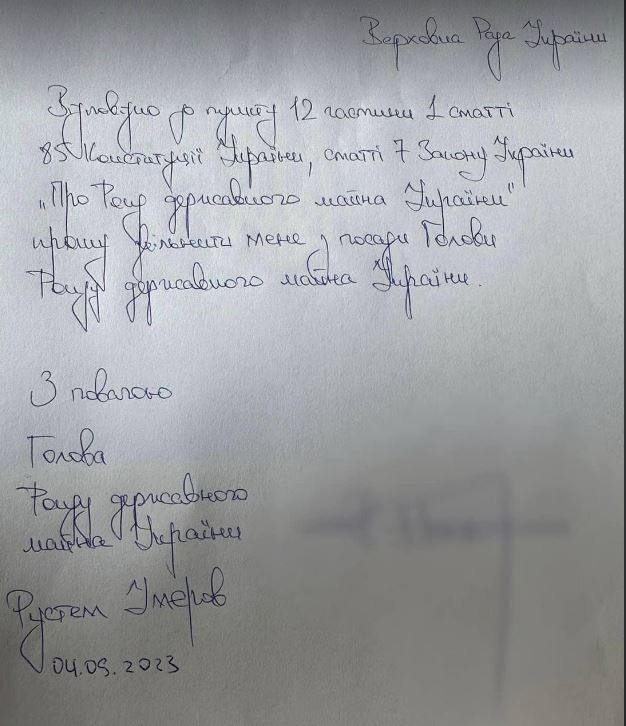 Верховна Рада України
Згідно до пункту 12 частини 1 статті
85 Конституції України, статті 7 Закону України
„Про Фонд державного майна України"
прошу звільнити мене з посади Голови
Фонду державного майна України.
З повагою
Голова
Фонду державного
майна України
Рустем Умеров
04.09.2023